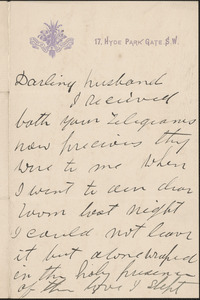 17, HYDE PARK GATE. S.W.
Darling husband
I recieved
both your Telegrams
how precious they
were to me when
I went to our dear
room last night
I could not leave
it but alone
in the holy presence
of thy love I slept